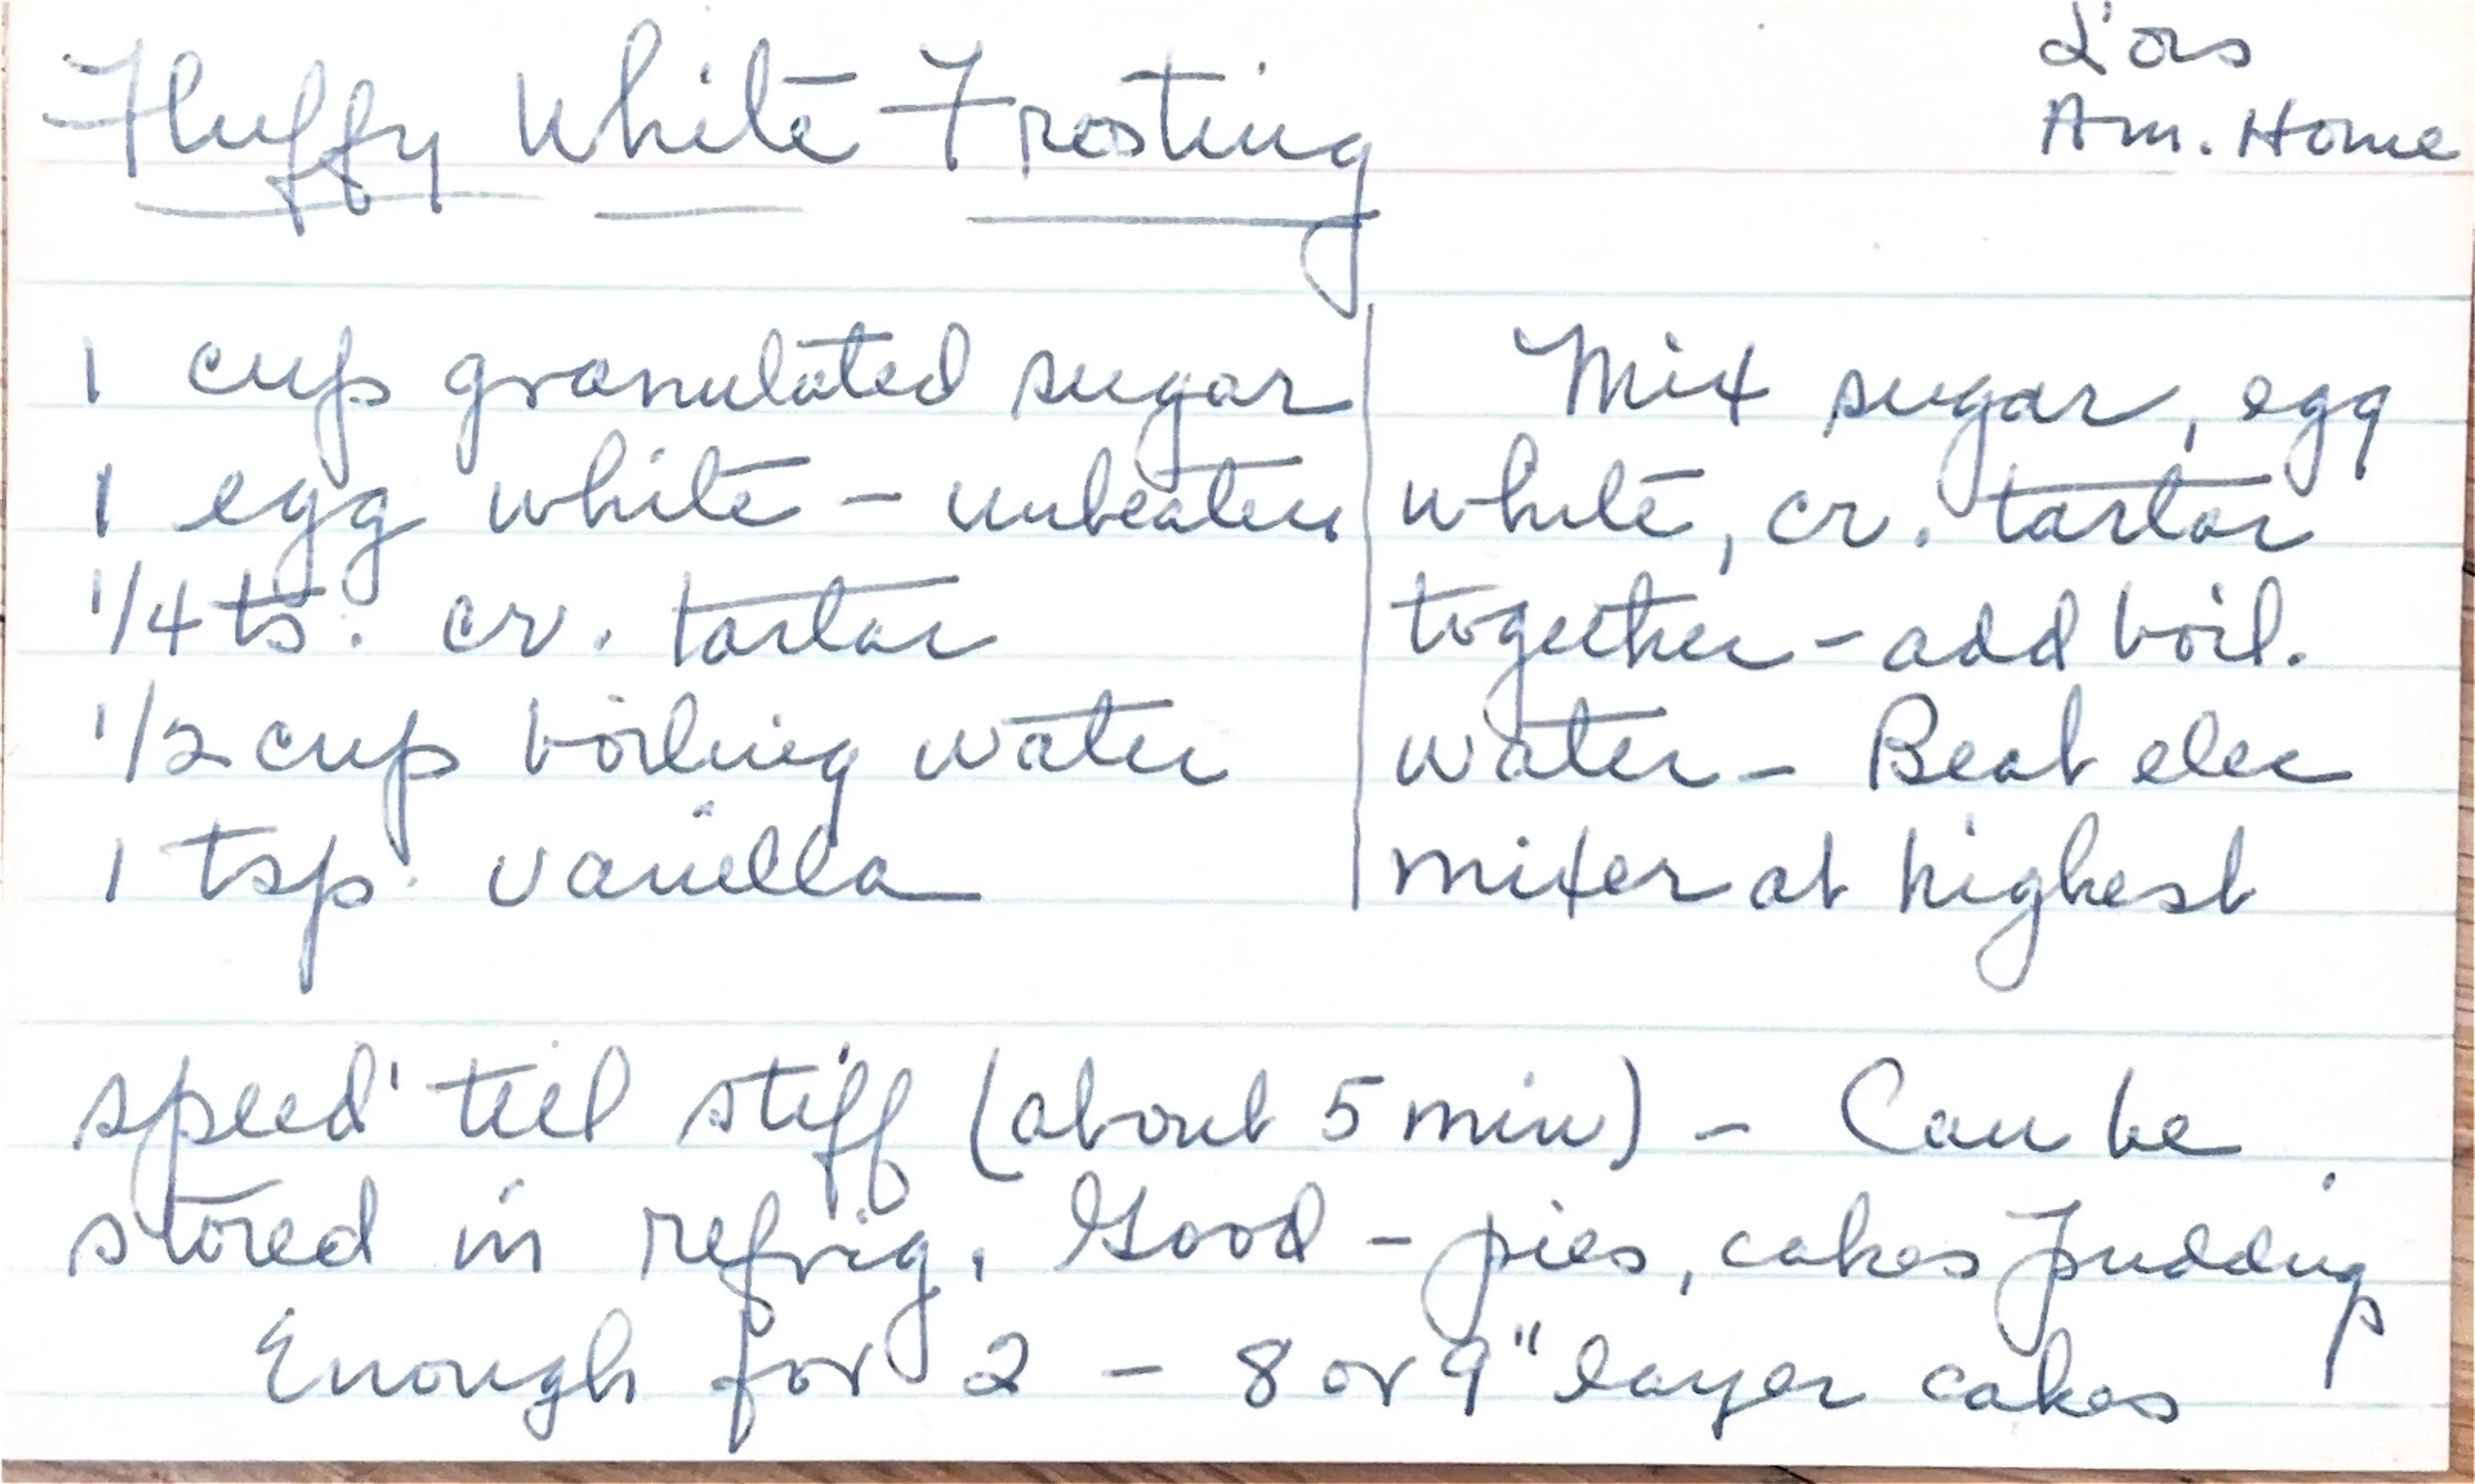 Fluffy White Frosting
Lois
Am. Home
1 cup granulated sugar
1 egg white – unbeaten
1/4 ts. cr. tartar
1/2 cup boiling water
1 tsp. vanilla
Mix sugar, egg
white, cr. tartar
together – add boil.
water – Beat elec
mixer at highest
speed 'till stiff (about 5 min) – Can be
stored in refrig. Good – pies, cakes pudding
Enough for 2 – 8 or 9" layer cakes